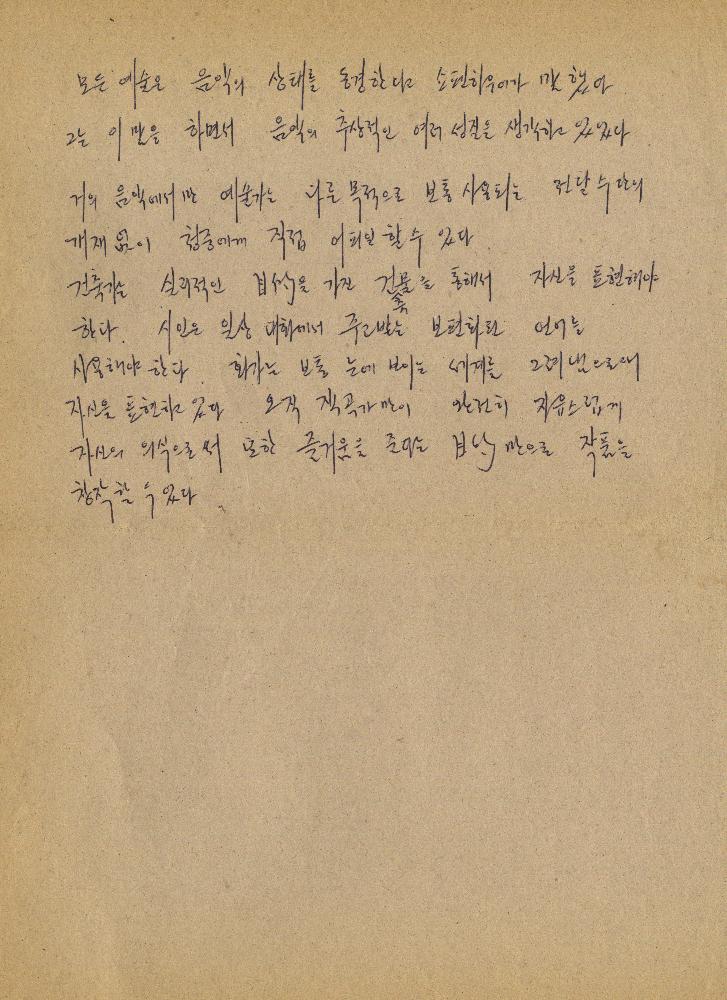 모든 예술은 음악의 상태를 동경한다고 쇼펜하우어가 말했다
그는 이 말을 하면서 음악의 추상적인 여러 성질을 생각하고 있었다
거의 음악에서만 예술가는 다른 목적으로 보통 사용되는 전달수단의
개재 없이 청중에게 직접 어피일 할 수 있다
건축가는 실리적인 目的을 가진 건물을 통해서 자신을 표현해야
축
한다. 시인은 일상 대화에서 주고받는 보편화된 언어를
사용해야 한다. 화가는 보통 눈에 보이는 세계를 그려냄으로써
자신을 표현하고 있다 오직 작곡가만이 완전히 자유스럽게
자신의 의식으로써 또한 즐거움을 준다는 目的만으로 작품을
창작할 수 있다